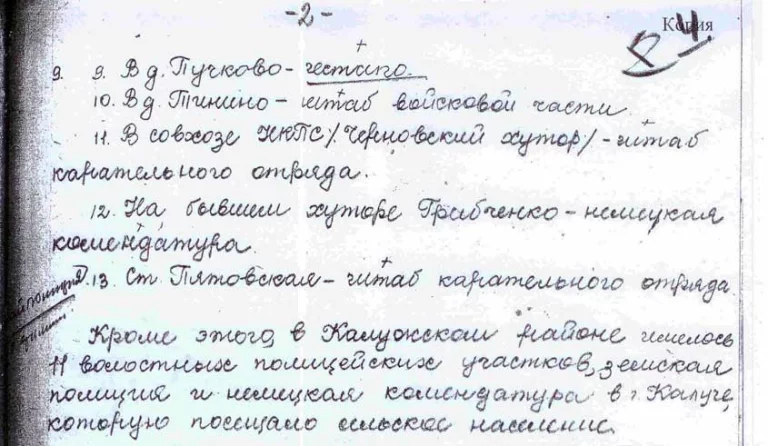 -2-
Копия
4.
9. 9. В д. Пучково - гестапо.
10. В д. Тинино - штаб войсковой части
11. В совхозе НКПС /Черновский хутор/ - штаб
карательного отряда.
12. На бывшем хуторе Грибченко - немецкая
комендатура.
13. Ст. Пятовская - штаб карательного отряда
Кроме этого, в Калужском районе имелось
11 волостных полицейских участков, земская
полиция и немецкая комендатура в г. Калуге,
которую посещало сельское население.